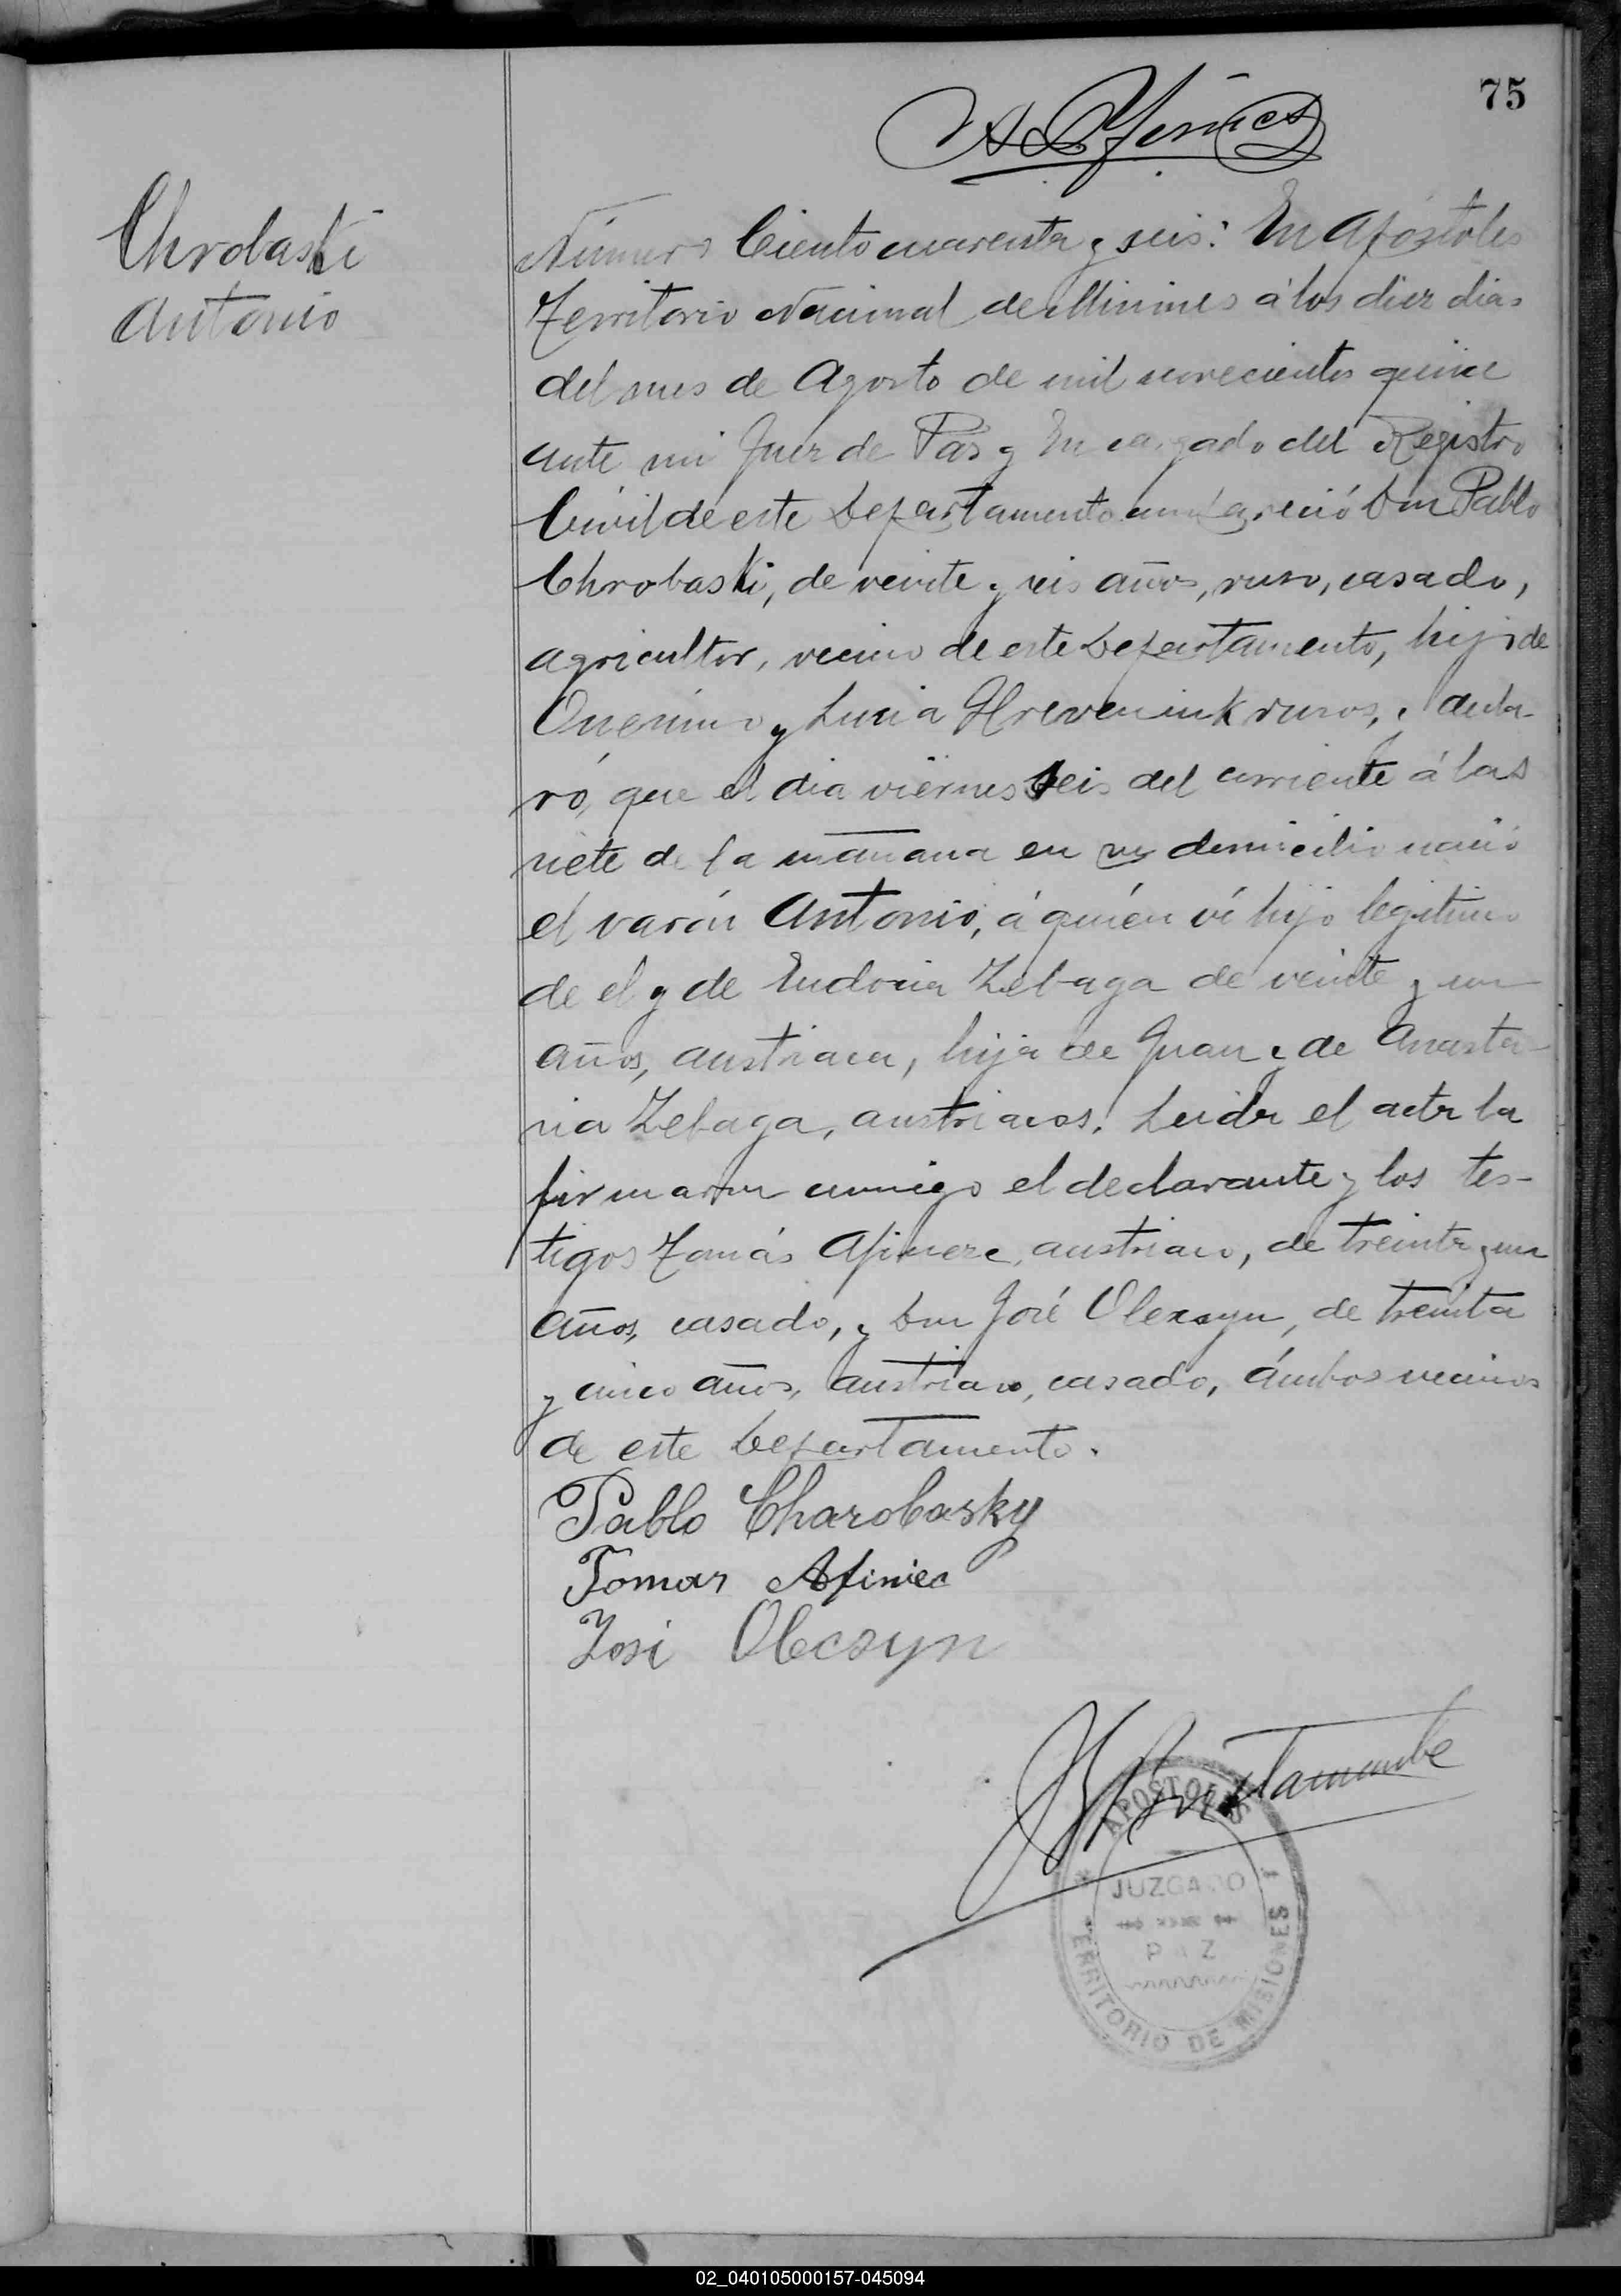 75
Chrobaski
Antonio
Número Ciento cuarenta y seis: En Apóstoles
Territorio Nacional de Misiones á los diez dias
del mes de Agosto de mil novecientos quince
ante mi Juez de Paz y Encargado del Registro
Civil de este Departamento compareció Don Pablo
Chrobaski, de veinte y seis años, ruso, casado,
agricultor, vecino de este Departamento, hijo de
Onesimo y Lucia Hreveniuk rusos, y decla-
ró, que el dia viérnes seis del corriente á las
siete de la mañana en su domicilio nació
el varón Antonio, á quién ví hijo legitimo
de el y de Eudocia Zebaga de veinte y un
años, austriaca, hija de Juan y de Anasta-
sia Zebaga, austriacos. Leida el acta la
firmaron conmigo el declarante y los tes-
tigos Tomás Afinere, austriaco, de treinta y un
años, casado, y Don José Olexsyn, de treinta
y cinco años, austriaco, casado, ámbos vecinos
de este Departamento.
Pablo Charobasky
Tomas Afiniec
Josi Olecsyn
Bustamante
APOSTOLES
JUZGADO
PAZ
TERRITORIO DE MISIONES
02_040105000157-045094